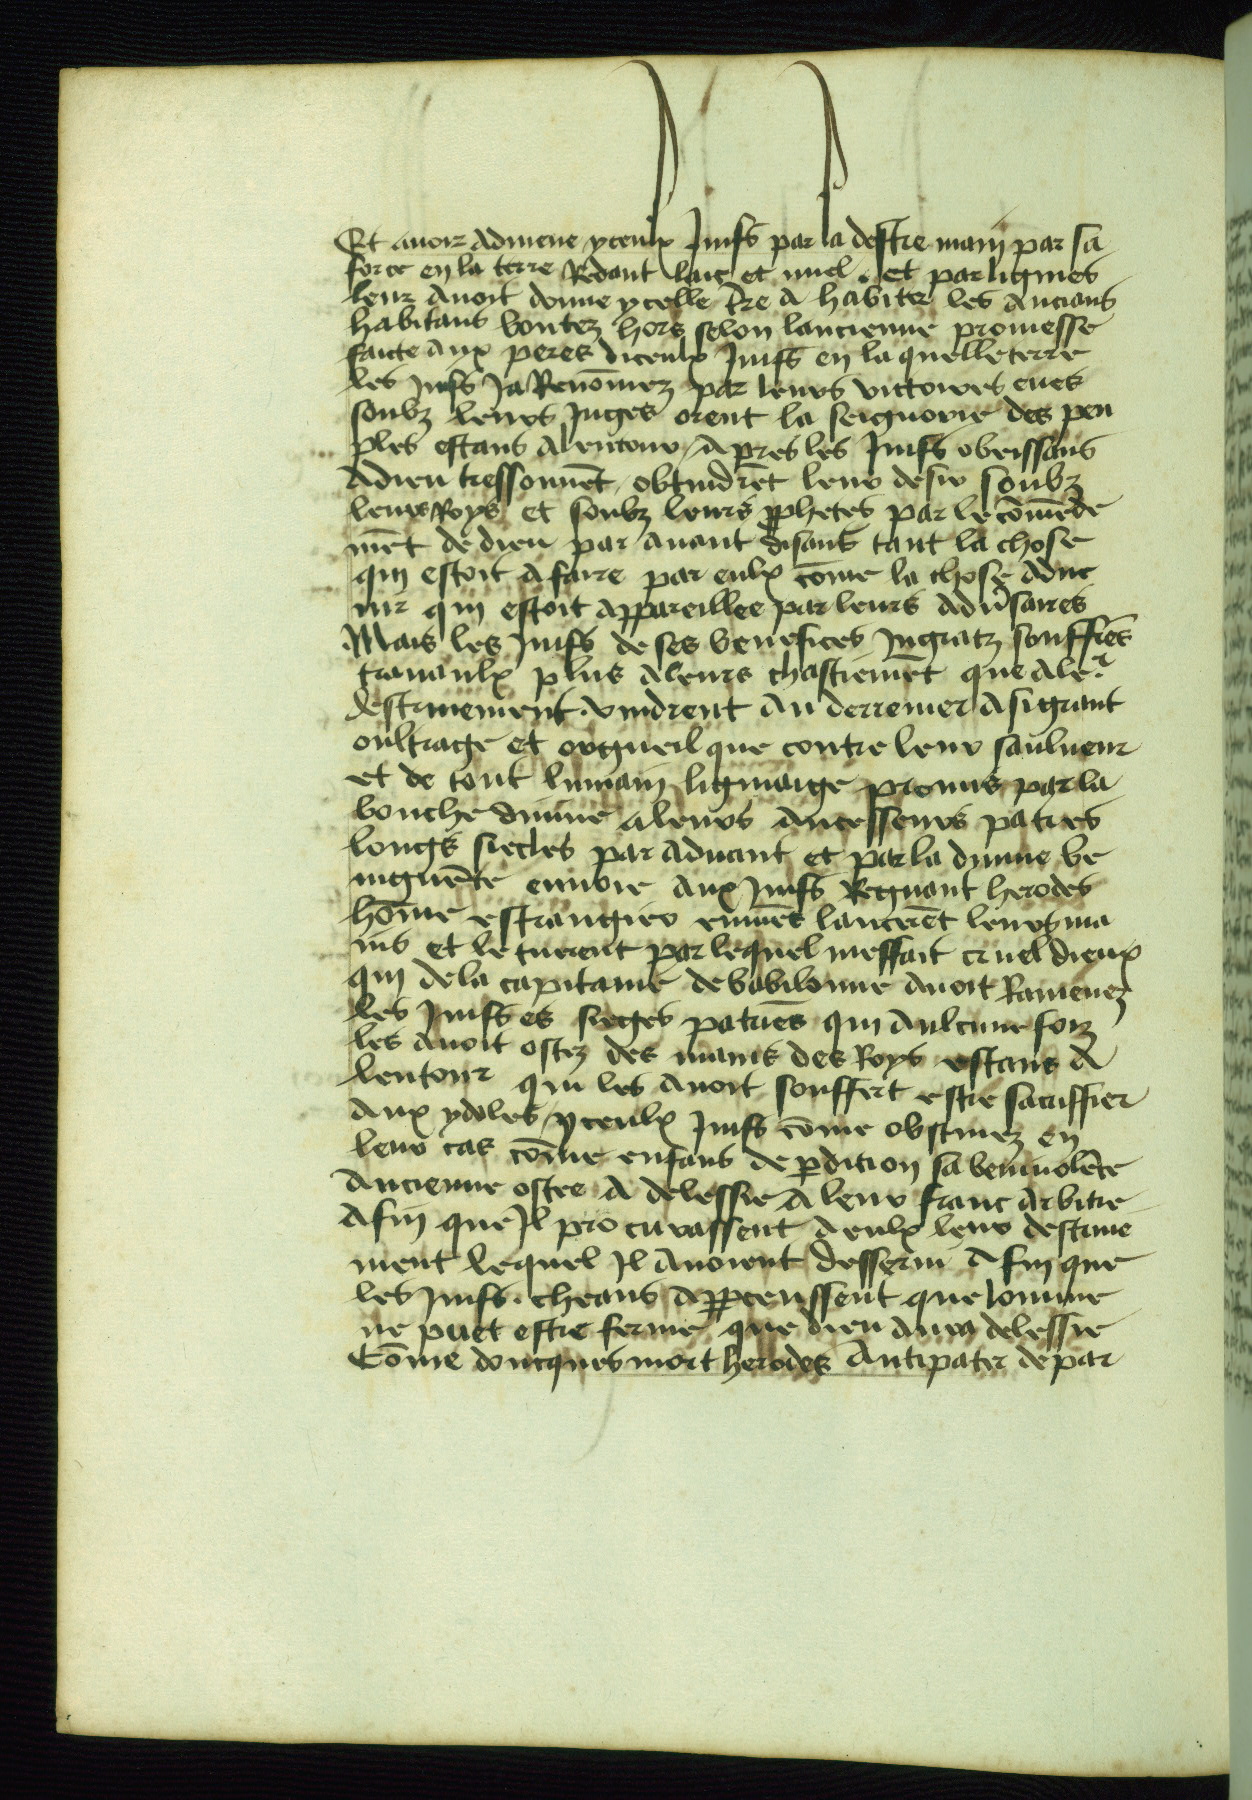 Et auoir admene yceulx Juifs par la destre main par sa
force en la terre Redant laic et miel . et par lignies
leur auoit donne ycelle t̃re a habiter les ancians
habitans boutez hors selon lancienne promesse
faicte aux peres diceulx Juifs en la quelle terre
les Juifs Ja Renom̃ez par leurs victoires eues
soubz leurs Juges orent la seignorie des peu
ples estans alentour / Apres les Juifs obeissans
a dieu tressouuẽt obtindrẽt leur desir soubz
leurs Roys et soubz leurs ꝓphetes par le cõmẽde
mẽt de dieu par auant disans tant la chose
qui estoit a faire par eulx cõme la chose adue
nir qui estoit appareillee par leurs adũsaires
Mais les Juifs de ses benefices Jngratz souffrẽs
trauaulx plus a leurs chastiemẽt que a leᷣ
destruiement . vindrent au derrenier a si grant
oultrage et orgueil que contre leur saulueur
et de tout lumain lignaige promis par la
bouche diuine a leurs ancesseurs patres
longs siecles par aduant et par la diuine be
niguẽte enuoie aux Juifs Regnant herodes
hõme estrangier enuiẽs lancerẽt leurs ma
ins et le tuerent par lequel meffait cruel dieux
qui de la capitaine de babilonne auoit Ramenez
les Juifs es sieges patriẽs qui aulcune foiz
les auoit ostez des mains des Roys estans a
lentour qui les auoit souffert estre sacriffier
aux ydoles / yceulx Juifs cõme obstinez en
leur cas cõme enfans de ꝑdition sa beniuolẽce
ancienne ostee a delessie a leur franc arbitre
Afin que Jl procurassent a eulx leur destruie
ment lequel Jl auoient desserui Afin que
les Juifs . cheans apperceussent que lomme
ne puet estre ferme que dieu aura delessie
Cõme doncques mort herodes Antipater de par